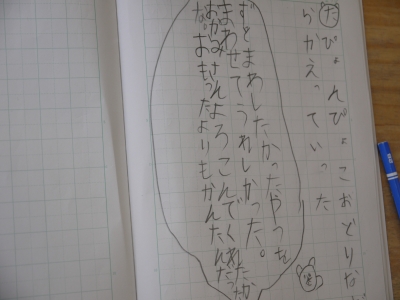 だぴょんぴょこおどりなが
らかえっていった
ずとまわしたかったやつを
まわせてうれしかった。
おかみさんよろこんでくれたか
なおもったよりもかんたんだっ